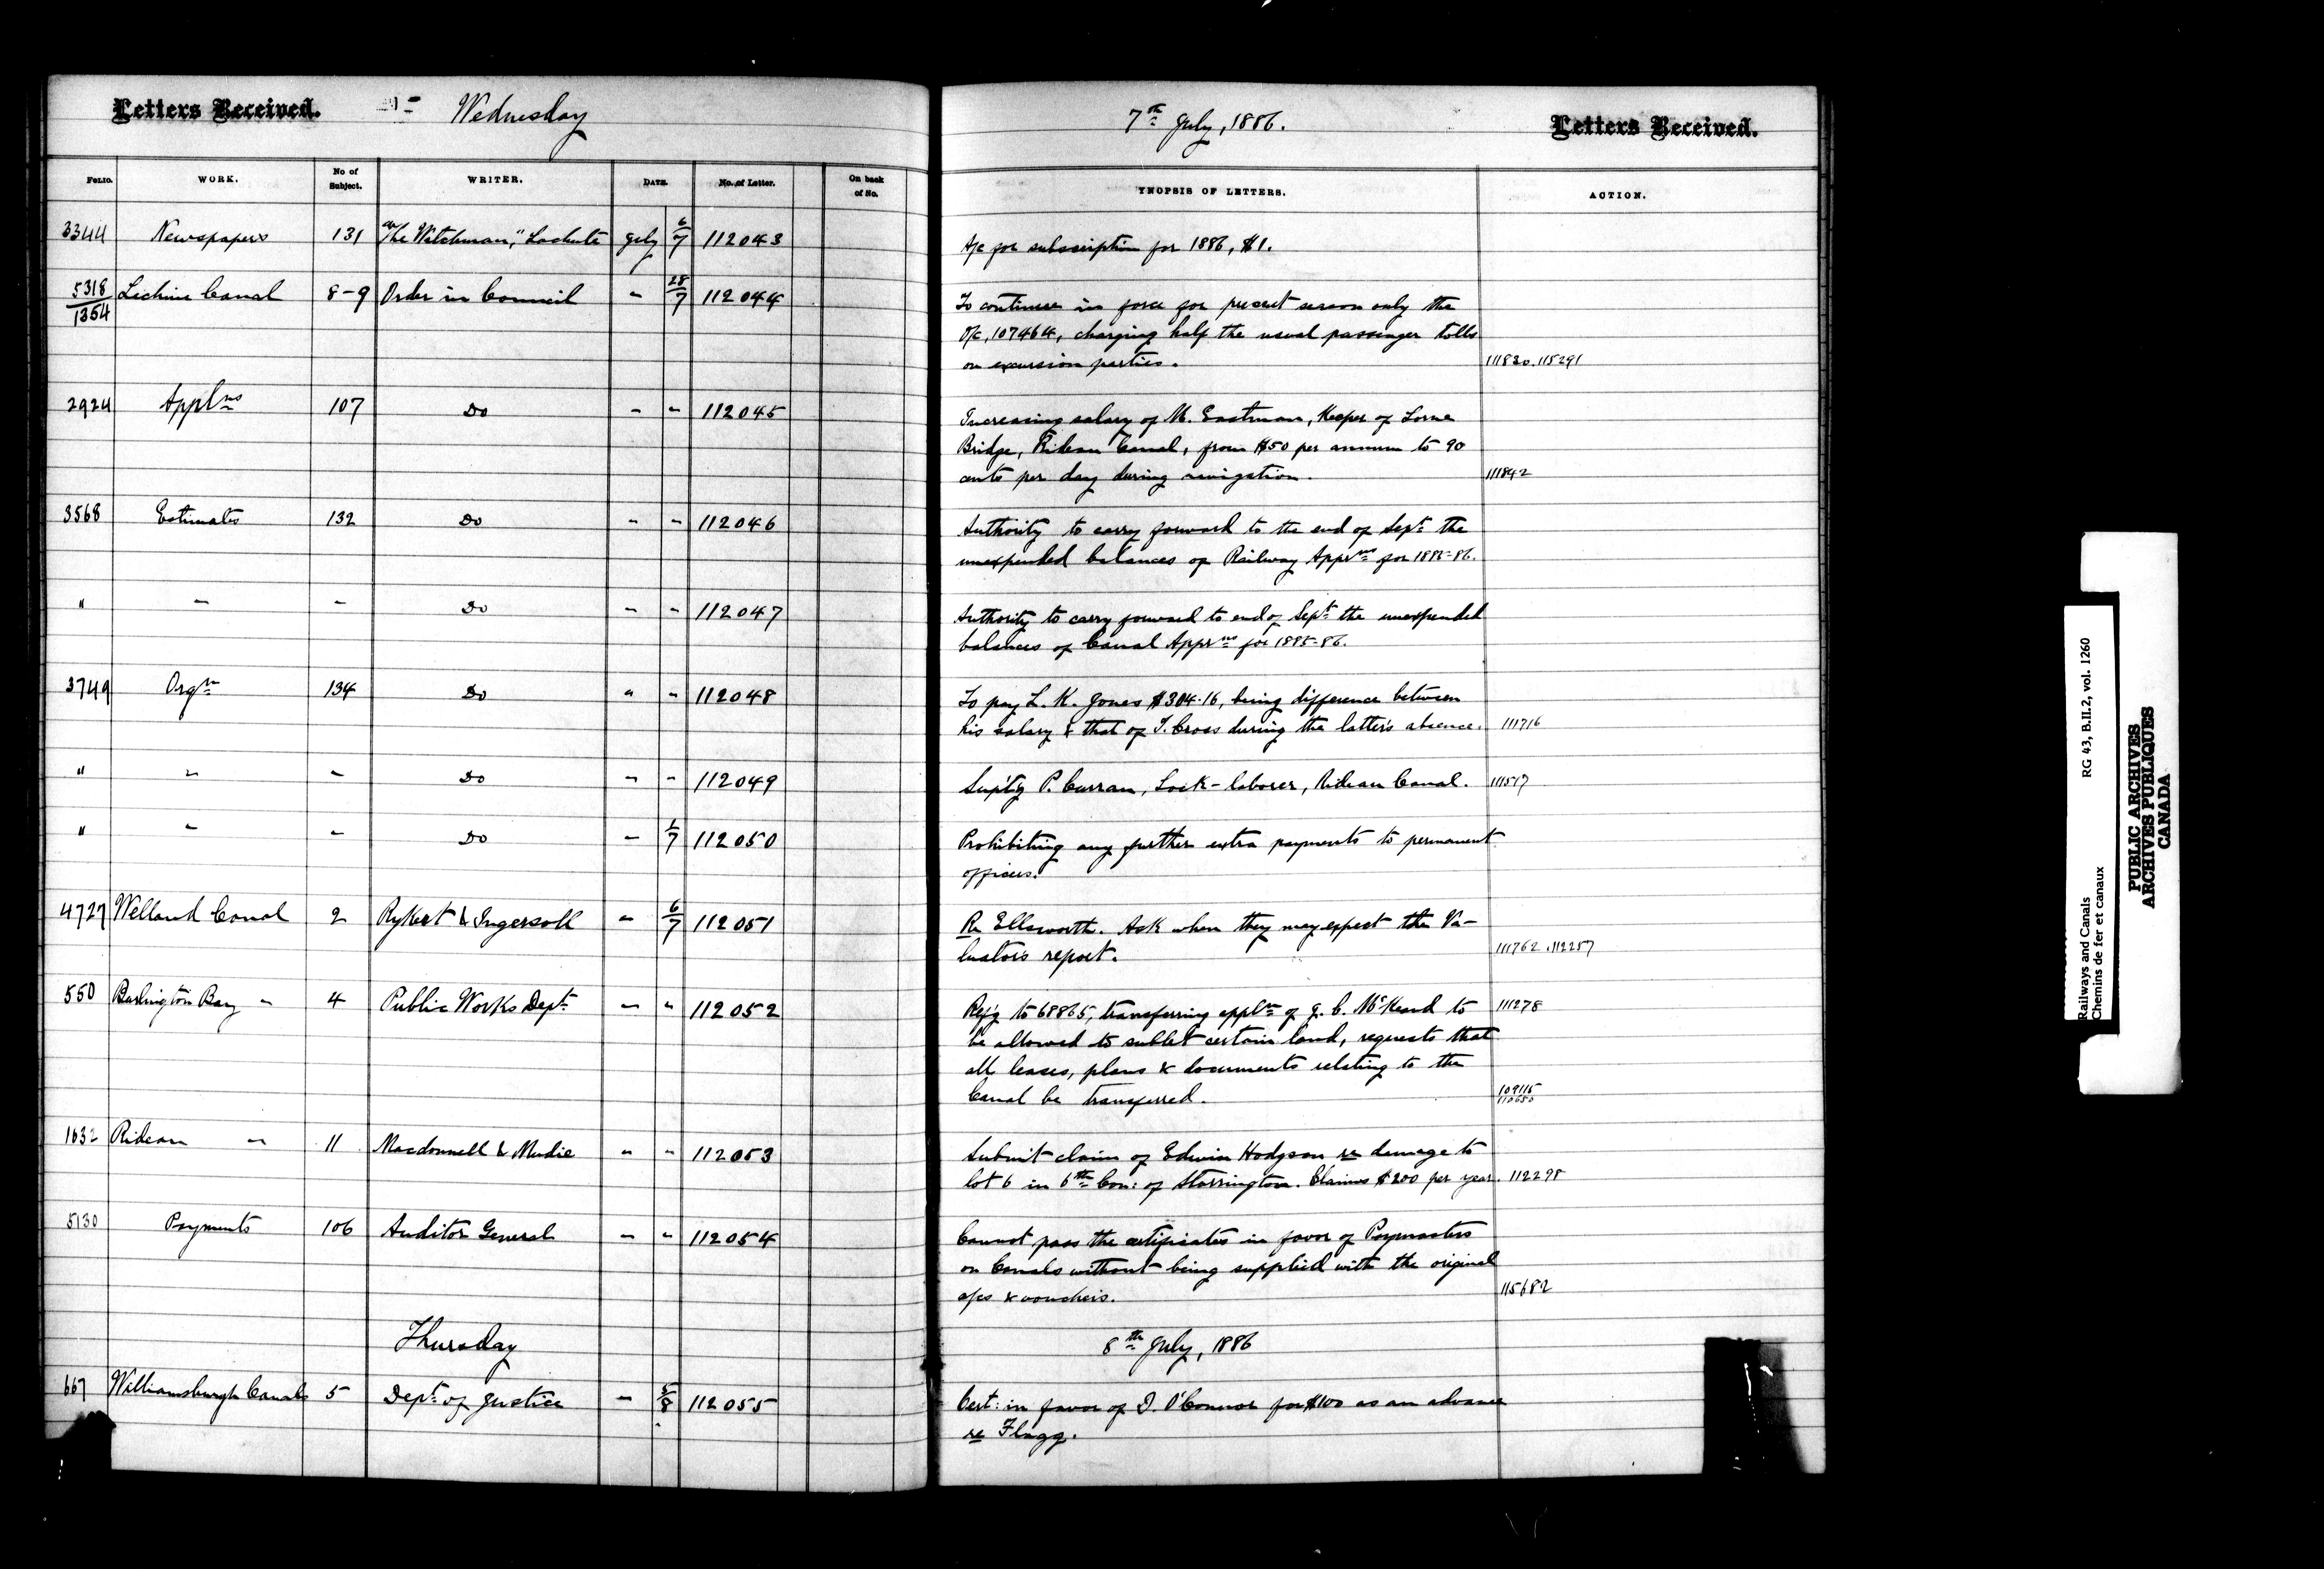 Letters Received. Wednesday 7th July, 1886. Letters Received.
FOLIO. WORK. No of Subject. WRITER. DATE. No. of Letter. On back of No. YNOPSIS OF LETTERS. ACTION.
3344 Newspapers 131 "The Watchman," Lachute July 6/7 112043 A/c for subscription for 1886, $1.
5318/1354 Lachine Canal 8-9 Order in Council " 28/7 112044 To continue in force for present season only the
O/c, 107464, charging half the usual passenger tolls
on excursion parties. 111830. 115291
2924 Applns 107 Do " " 112045 Increasing salary of M. Eastman, Keeper of Lorne
Bridge, Rideau Canal, from $50 per annum to 90
cents per day during navigation. 111842
3568 Estimates 132 Do " " 112046 Authority to carry forward to the end of Sept. the
unexpended balances of Railway Apprns for 1885-86.
" " " Do " " 112047 Authority to carry forward to end of Sept. the unexpended
balances of Canal Apprns for 1885-86.
3749 Orgn 134 Do " " 112048 To pay L. K. Jones $304.16, being difference between
his salary & that of T. Cross during the latter's absence. 111716
" " " Do " " 112049 Supt'g P. Curran, Lock-laborer, Rideau Canal. 111517
" " " Do " 1/7 112050 Prohibiting any further extra payments to permanent
officers.
4727 Welland Canal 2 Rykert & Ingersoll " 6/7 112051 Re Ellsworth. Ask when they may expect the Va-
luator's report. 111762. 112257
550 Burlington Bay " 4 Public Works Dept. " " 112052 Ref'g to 68865, transferring appln of J. C. McKeand to 111278
be allowed to sublet certain land, requests that
all leases, plans & documents relating to the
Canal be transferred. 109115
110650
1632 Rideau " 11 Macdonnell & Mudie " " 112053 Submit claim of Edwin Hodgson re damage to
lot 6 in 6th Con: of Storrington. Claims $200 per year. 112298
5130 Payments 106 Auditor General " " 112054 Cannot pass the certificates in favor of Paymasters
on Canals without being supplied with the original
a/cs & vouchers. 115682
Thursday 8th July, 1886
667 Williamsburgh Canals 5 Dept. of Justice " 5/8 112055 Cert: in favor of D. O'Connor for $100 as an advance
re Flagg.
Railways and Canals RG 43, B.II.2, vol. 1260
Chemins de fer et canaux
PUBLIC ARCHIVES
ARCHIVES PUBLIQUES
CANADA